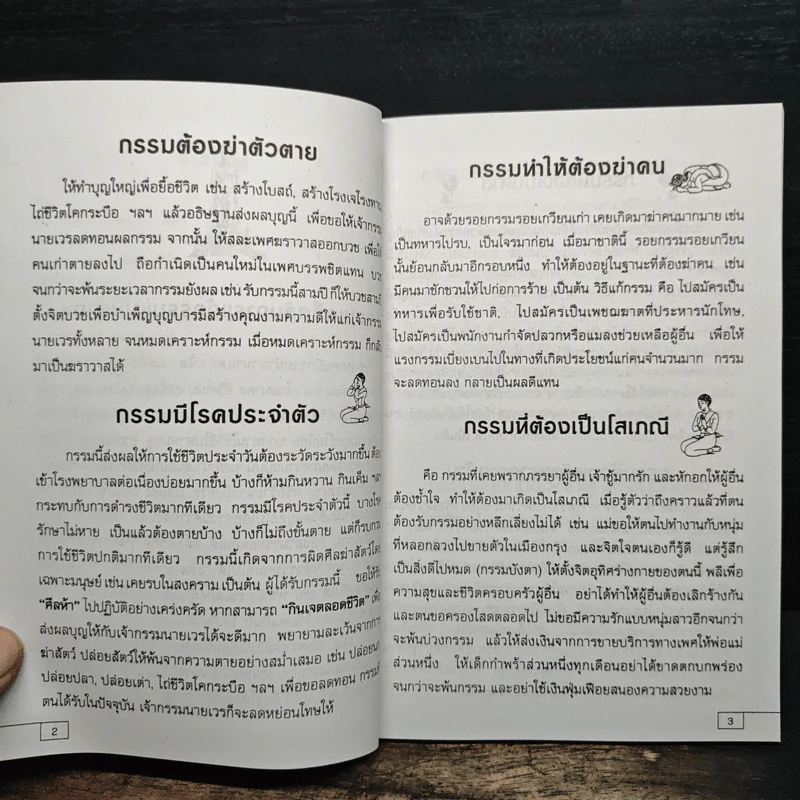 กรรมต้องฆ่าตัวตาย
ให้ทำบุญใหญ่เพื่อยื้อชีวิต เช่น สร้างโบสถ์, สร้างโรงเจโรงทาน
ไถ่ชีวิตโคกระบือ ฯลฯ แล้วอธิษฐานส่งผลบุญนี้ เพื่อขอให้เจ้ากรรม
นายเวรลดทอนผลกรรม จากนั้น ให้สละเพศฆราวาสออกบวช เพื่อให้
คนเก่าตายลงไป ถือกำเนิดเป็นคนใหม่ในเพศบรรพชิตแทน บวช
จนกว่าจะพ้นระยะเวลากรรมยังผล เช่น รับกรรมนี้สามปี ก็ให้บวชสามปี
ตั้งจิตบวชเพื่อบำเพ็ญบุญบารมีสร้างคุณงามความดีให้แก่เจ้ากรรม
นายเวรทั้งหลาย จนหมดเคราะห์กรรม เมื่อหมดเคราะห์กรรม ก็กลับ
มาเป็นฆราวาสได้
กรรมมีโรคประจำตัว
กรรมนี้ส่งผลให้การใช้ชีวิตประจำวันต้องระวัดระวังมากขึ้น ต้อง
เข้าโรงพยาบาลต่อเนื่องบ่อยมากขึ้น บ้างก็ห้ามกินหวาน กินเค็ม ฯลฯ
กระทบกับการดำรงชีวิตมากทีเดียว กรรมมีโรคประจำตัวนี้ บางโรค
รักษาไม่หาย เป็นแล้วต้องตายบ้าง บ้างก็ไม่ถึงขั้นตาย แต่ก็รบกวน
การใช้ชีวิตปกติมากทีเดียว กรรมนี้เกิดจากการผิดศีลฆ่าสัตว์โดย
เฉพาะมนุษย์ เช่น เคยรบในสงคราม เป็นต้น ผู้ได้รับกรรมนี้ ขอให้รับ
"ศีลห้า" ไปปฏิบัติอย่างเคร่งครัด หากสามารถ "กินเจตลอดชีวิต" เพื่อ
ส่งผลบุญให้กับเจ้ากรรมนายเวรได้จะดีมาก พยายามละเว้นจากการ
ฆ่าสัตว์ ปล่อยสัตว์ให้พ้นจากความตายอย่างสม่ำเสมอ เช่น ปล่อยนก
ปล่อยปลา, ปล่อยเต่า, ไถ่ชีวิตโคกระบือ ฯลฯ เพื่อขอลดทอน กรรมที่
ตนได้รับในปัจจุบัน เจ้ากรรมนายเวรก็จะลดหย่อนโทษให้
2
กรรมทำให้ต้องฆ่าคน
อาจด้วยรอยกรรมรอยเกวียนเก่า เคยเกิดมาฆ่าคนมากมาย เช่น
เป็นทหารไปรบ, เป็นโจรมาก่อน เมื่อมาชาตินี้ รอยกรรมรอยเกวียน
นั้นย้อนกลับมาอีกรอบหนึ่ง ทำให้ต้องอยู่ในฐานะที่ต้องฆ่าคน เช่น
มีคนมาชักชวนให้ไปก่อการร้าย เป็นต้น วิธีแก้กรรม คือ ไปสมัครเป็น
ทหารเพื่อรับใช้ชาติ, ไปสมัครเป็นเพชฌฆาตที่ประหารนักโทษ,
ไปสมัครเป็นพนักงานกำจัดปลวกหรือแมลงช่วยเหลือผู้อื่น เพื่อให้
แรงกรรมเบี่ยงเบนไปในทางที่เกิดประโยชน์แก่คนจำนวนมาก กรรม
จะลดทอนลง กลายเป็นผลดีแทน
กรรมที่ต้องเป็นโสเภณี
คือ กรรมที่เคยพรากภรรยาผู้อื่น เจ้าชู้มากรัก และหักอกให้ผู้อื่น
ต้องช้ำใจ ทำให้ต้องมาเกิดเป็นโสเภณี เมื่อรู้ตัวว่าถึงคราวแล้วที่ตน
ต้องรับกรรมอย่างหลีกเลี่ยงไม่ได้ เช่น แม่ขอให้ตนไปทำงานกับหนุ่ม
ที่หลอกลวงไปขายตัวในเมืองกรุง และจิตใจตนเองก็รู้ดี แต่รู้สึก
เป็นสิ่งดีไปหมด (กรรมบังตา) ให้ตั้งจิตอุทิศร่างกายของตนนี้ พลีเพื่อ
ความสุขและชีวิตครอบครัวผู้อื่น อย่าได้ทำให้ผู้อื่นต้องเลิกร้างกัน
และตนขอครองโสดตลอดไป ไม่ขอมีความรักแบบหนุ่มสาวอีกจนกว่า
จะพ้นบ่วงกรรม แล้วให้ส่งเงินจากการขายบริการทางเพศให้พ่อแม่
ส่วนหนึ่ง ให้เด็กกำพร้าส่วนหนึ่งทุกเดือนอย่าได้ขาดตกบกพร่อง
จนกว่าจะพ้นกรรม และอย่าใช้เงินฟุ่มเฟือยสนองความสวยงาม
3